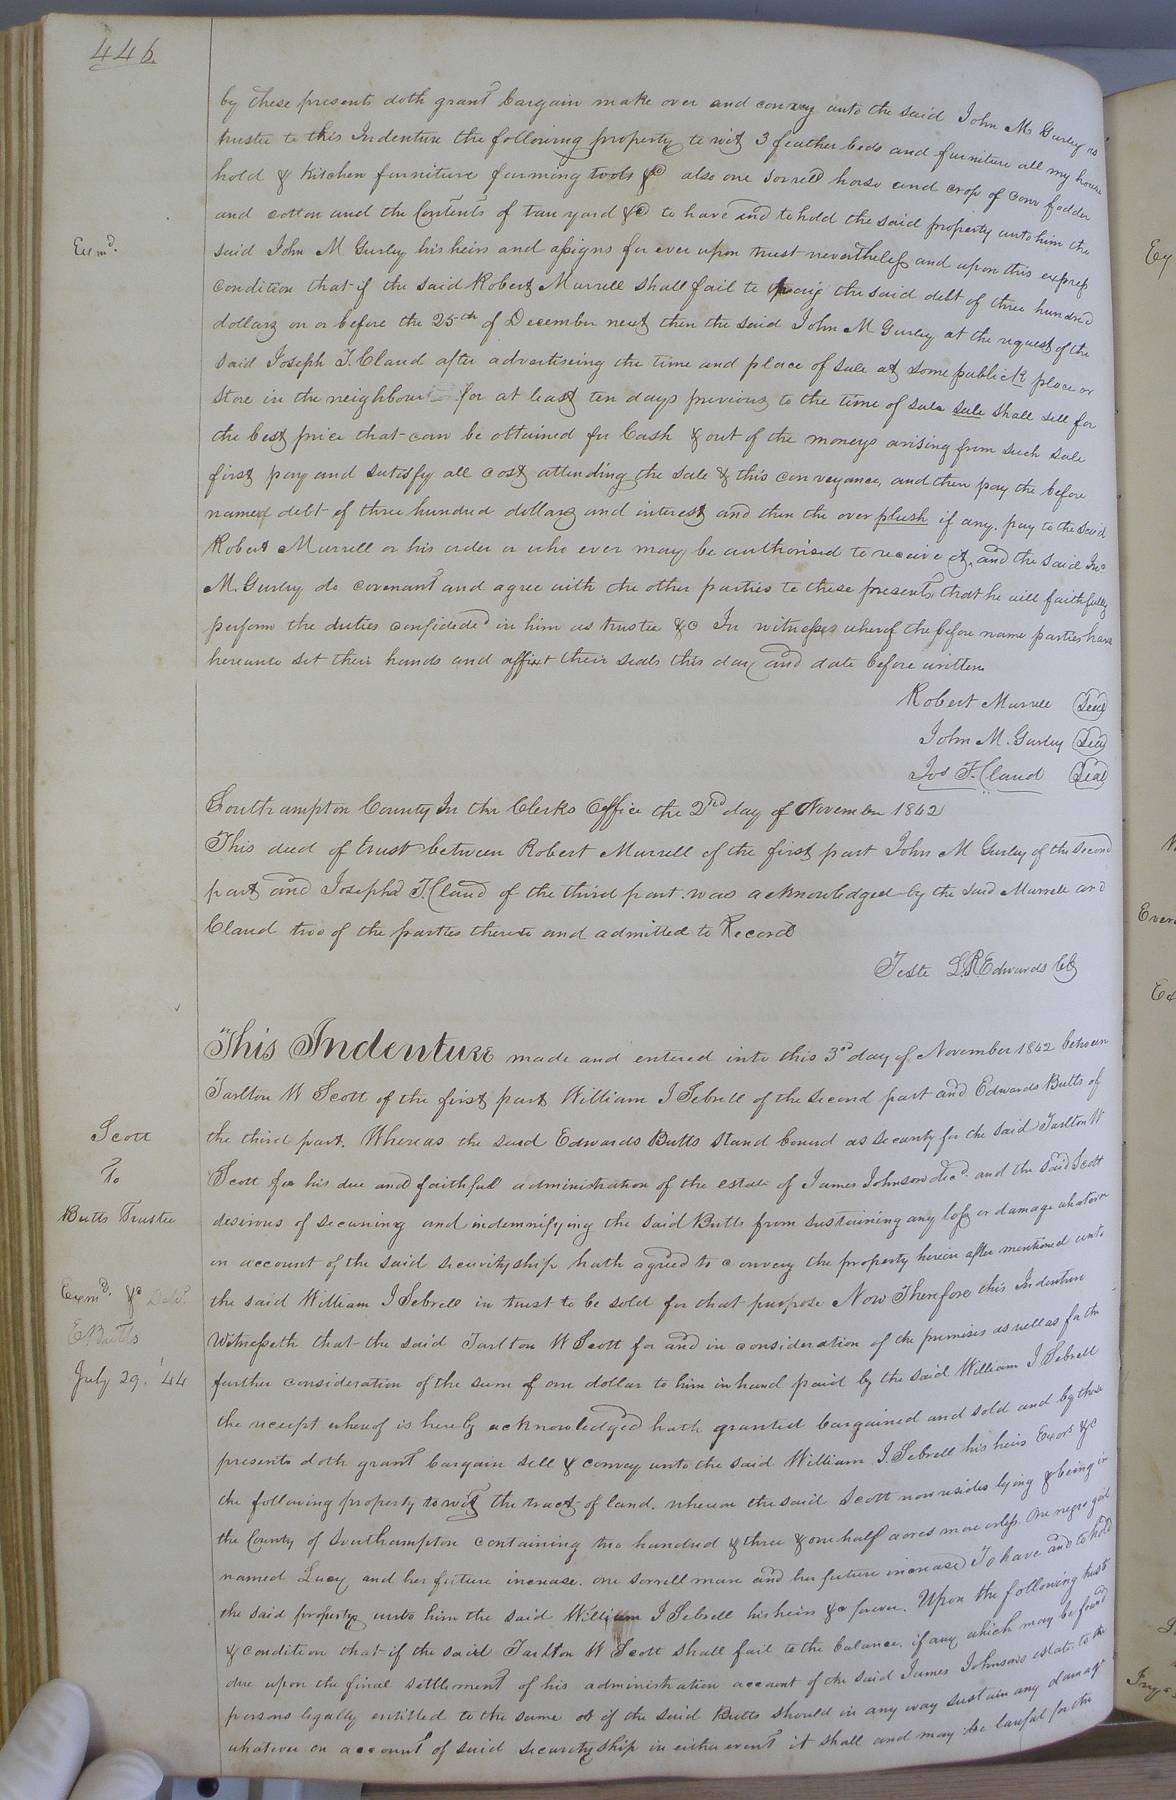 446.
by these presents doth grant bargain make over and convey unto the said John M Gurley as
trustee to this Indenture the following property to wit 3 feather beds and furniture all my house
hold & Kitchen furniture farming tools &c also one Sorrell horse and crop of corn fodder
and cotton and the Contents of tan yard &c to have and to hold the said property unto him the
Exmd.
said John M Gurley his heirs and assigns for ever upon trust nevertheless and upon this express
condition that if the said Robert Murrell shall fail to pay the said debt of three hundred
dollars on or before the 25th of December next then the said John M Gurley at the request of the
said Joseph T. Claud after advertiseing the time and place of sale at some publick place or
Store in the neighbour for at least ten days previous to the time of sale sale shall sell for
the best price that can be obtained for Cash & out of the moneys arising from such sale
first pay and satisfy all cost attending the sale & this conveyance, and then pay the before
named debt of three hundred dollars and interest and then the over plush if any. pay to the said
Robert Murrell or his order or who ever may be authorised to receive it, and the said Jno
M. Gurley do covenant and agree with the other parties to these presents that he will faithfully
perform the duties confideded in him as trustee &c In witness whereof the before name parties have
hereunto set their hands and affixt their seals this day and date before written
Robert Murrell Seal
John M. Gurley Seal
Jos T. Claud Seal
Southampton County In the Clerks Office the 2nd day of November 1842
This deed of trust between Robert Murrell of the first part John M Gurley of the Second
part and Joseph T. Claud of the third part. was acknowledged by the said Murrell and
Claud two of the parties thereto and admitted to Record
Teste L R Edwards Clk
This Indenture made and entered into this 3rd day of November 1842 between
Tarlton W Scott of the first part William J Sebrell of the second part and Edwards Butts of
Scott
To
Butts Trustee
the third part. Whereas the said Edwards Butts stand bound as security for the said Tarlton W
Scott for his due and faithful administration of the estate of James Johnson decd. and the said Scott
desirous of securing and indemnifying the said Butts from sustaining any loss or damage whatever
on account of the said securityship hath agreed to convey the property herein after mentioned unto
Exmd. &c Deld.
E Butts
July 29. '44
the said William J Sebrell in trust to be sold for that purpose Now Therefore this Indenture
Witnesseth that the said Tarlton W Scott for and in consideration of the premises as well as for the
further consideration of the sum of one dollar to him in hand paid by the said William J Sebrell
the receipt whereof is hereby acknowledged hath granted bargained and sold and by these
presents doth grant bargain sell & convey unto the said William J. Sebrell his heirs Exors &c
the following property to wit the tract of land. whereon the said Scott now resides lying & being in
the County of Southampton containing two hundred & three & one half acres more or less. One negro girl
named Lucy and her future increase. one sorrell mare and her future increase To have and to hold
the said property unto him the said William J Sebrell his heirs &c forever. Upon the following trust
& condition that if the said Tarlton W Scott shall fail to the balance, if any which may be found
due upon the final settlement of his administration account of the said James Johnsons estate to the
persons legally entitled to the same or if the said Butts should in any way sustain any damage
whatever on account of said securityship in either event it shall and may be lawful for the